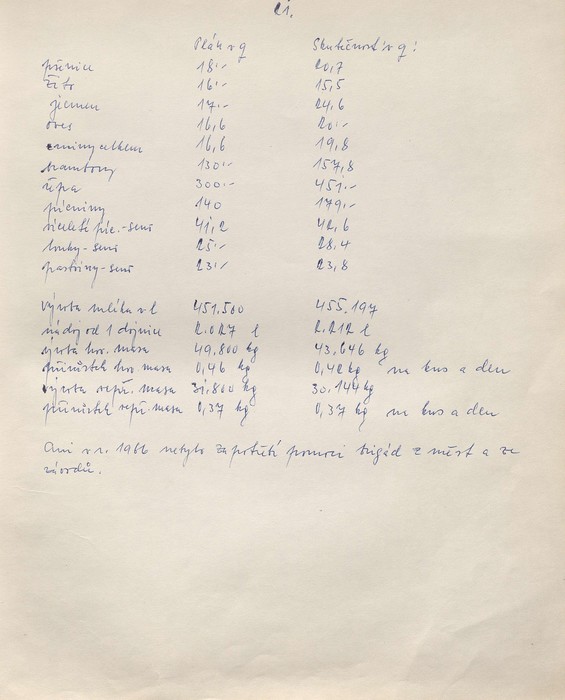 21.
Plán v q Skutečnost v q:
pšenice 18.- 20,7
žito 16.- 15,5
ječmen 17.- 24,6
oves 16,6 20.-
zrniny celkem 16,6 19,8
brambory 130.- 157,8
řepa 300.- 451.-
pícniny 140 179.-
víceleté píc.-seno 41,2 42,6
louky-seno 25.- 28,4
pastviny-seno 23.- 23,8
výroba mléka v l 451.500 455.197
nádoj od 1 dojnice 2.027 l 2.212 l
výroba hov. masa 49.800 kg 43.646 kg
přírůstek hov. masa 0,46 kg 0,42 kg na kus a den
výroba vepř. masa 31.800 kg 30.144 kg
přírůstek vepř. masa 0,37 kg 0,37 kg na kus a den
Ani v r. 1966 nebylo zapotřebí pomoci brigád z měst a ze
závodů.